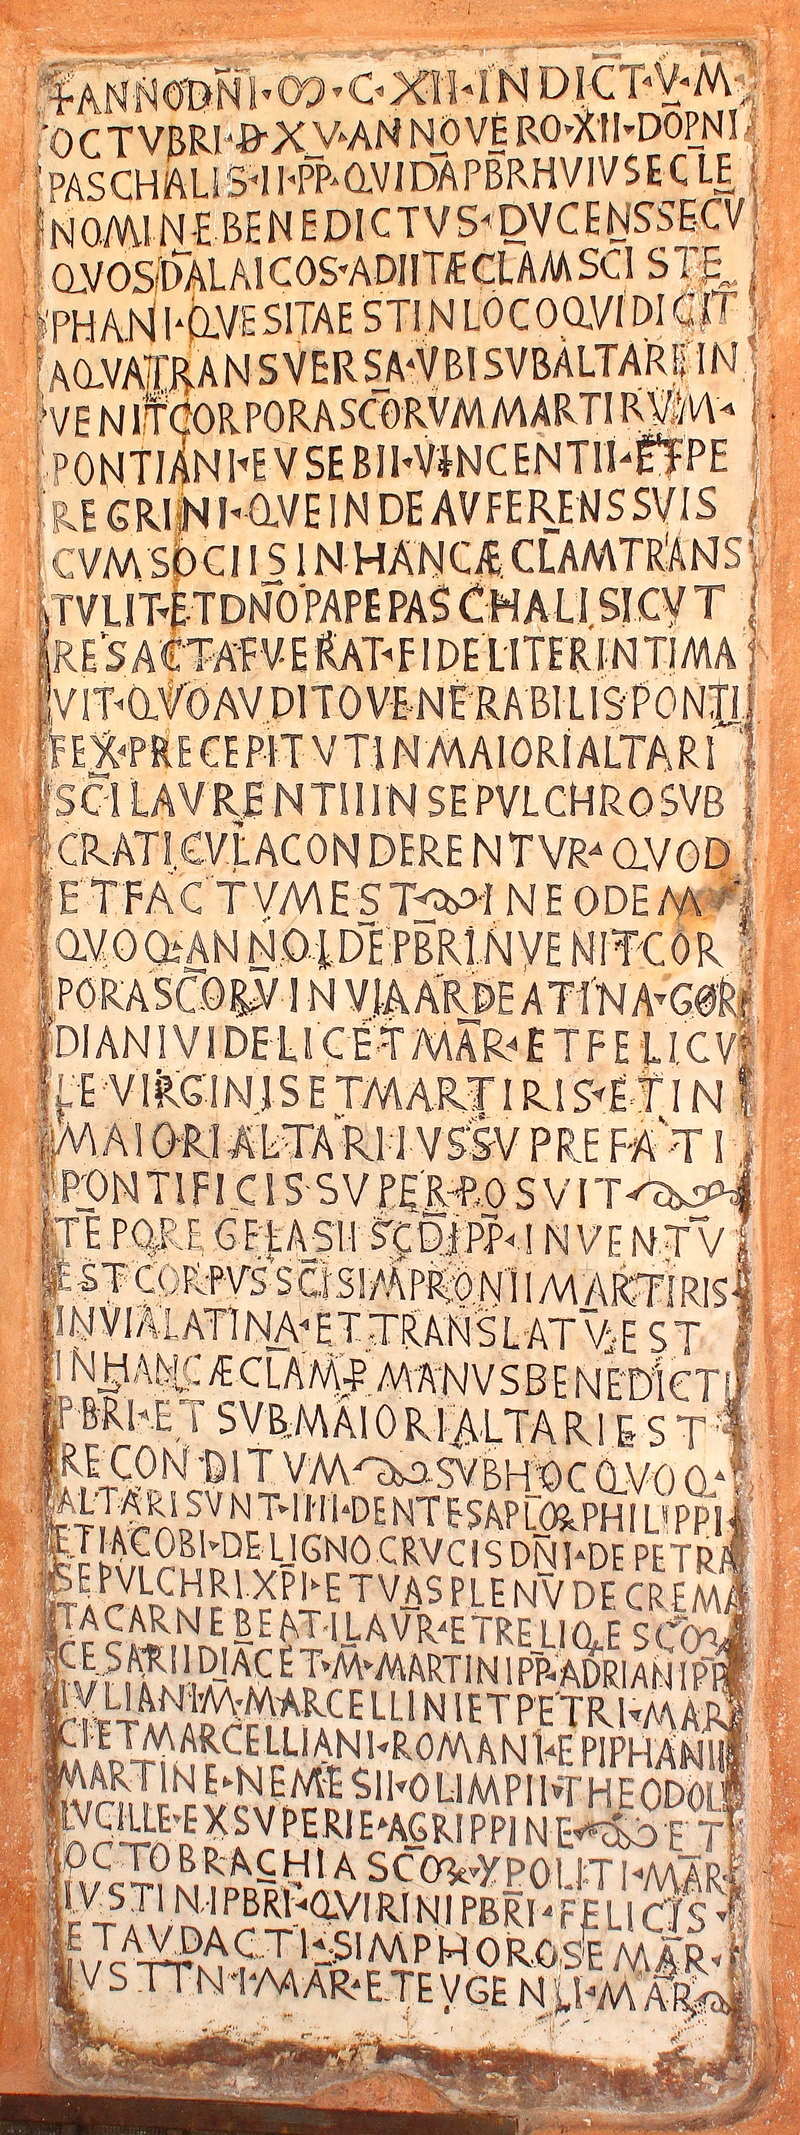 +ANNODN̄I·ꝎC·XII·INDIC̄T·V·M̄·
OCTVBRI·D̵XV·ANNOVERO·XII·DŌPNI
PASCHALIS·II·P̄P̄·QVIDĀPB̄RHVIVSECL̄E
NOMINEBENEDICTVS·DVCENSSECV̄
QVOSD̄ALAICOS·ADIITÆCL̄AMSC̄ISTE
PHANI·QVESITAESTINLOCOQVIDICIT̄
AQVATRANSVERSA·VBISVBALTAREIN
VENIT̄CORPORASC̄ORVMMARTIRVM·
PONTIANI·EVSEBII·VINCENTII·ETPE
REGRINI·QVEINDEAVFERENSSVIS
CVMSOCIISINHANCÆCL̄AMTRANS
TVLIT·ETDN̄OPAPEPASCHALISICVT
RESACTAFVERAT·FIDELITERINTIMA
VIT·QVOAVDITOVENERABILISPONTI
FEX·PRECEPITVTINMAIORIALTARI
SC̄ILAVRENTIIINSEPVLCHROSVB
CRATICVLACONDERENTVR·QVOD
ETFACTVMEST INEODEM
QVOQ·ANNOIDĒPB̄RINVENITCOR
PORASC̄ORV̄INVIAARDEATINA·GOR
DIANIVIDELICETMĀR·ETFELICV
LEVIRGINISETMARTIRIS·ETIN
MAIORIALTARIIVSSVPREFATI
PONTIFICISSVPERPOSVIT
TĒPOREGELASIISC̄D̄IP̄P̄·INVENTV̄
ESTCORPVSSC̄ISIMPRONIIMARTIRIS·
INVIALATINA·ETTRANSLATV̄EST
INHANCÆCL̄AMꝐMANVSBENEDICTI
PB̄RI·ETSVBMAIORIALTARIEST
RECONDITVM SVBHOCQVOQ·
ALTARISVNT·IIII·DENTESAPL̄OꝝPHILIPPI·
ETIACOBI·DELIGNOCRVCISDN̄I·DEPETRA
SEPVLCHRIXP̄I·ETVASPLENV̄DECREMA
TACARNEBEATILAV̄R·ETRELIQ·ESC̄Oꝝ
CESARIIDIĀCET·M̄·MARTINIP̄P̄·ADRIANIP̄P̄
IVLIANIM̄·MARCELLINIETPETRI·MAR
CIETMARCELLIANI·ROMANI·EPIPHANII
MARTINE·NEMESII·OLIMPII·THEODOLI
LVCILLE·EXSVPERIE·AGRIPPINE ET
OCTOBRACHIASC̄Oꝝ·YPOLITI·MĀR·
IVSTINIPB̄RI·QVIRINIPB̄RI·FELICIS·
ETAVDACTI·SIMPHOROSEMĀR·
IVSTINI·MĀR·ETEVGENII·MĀR